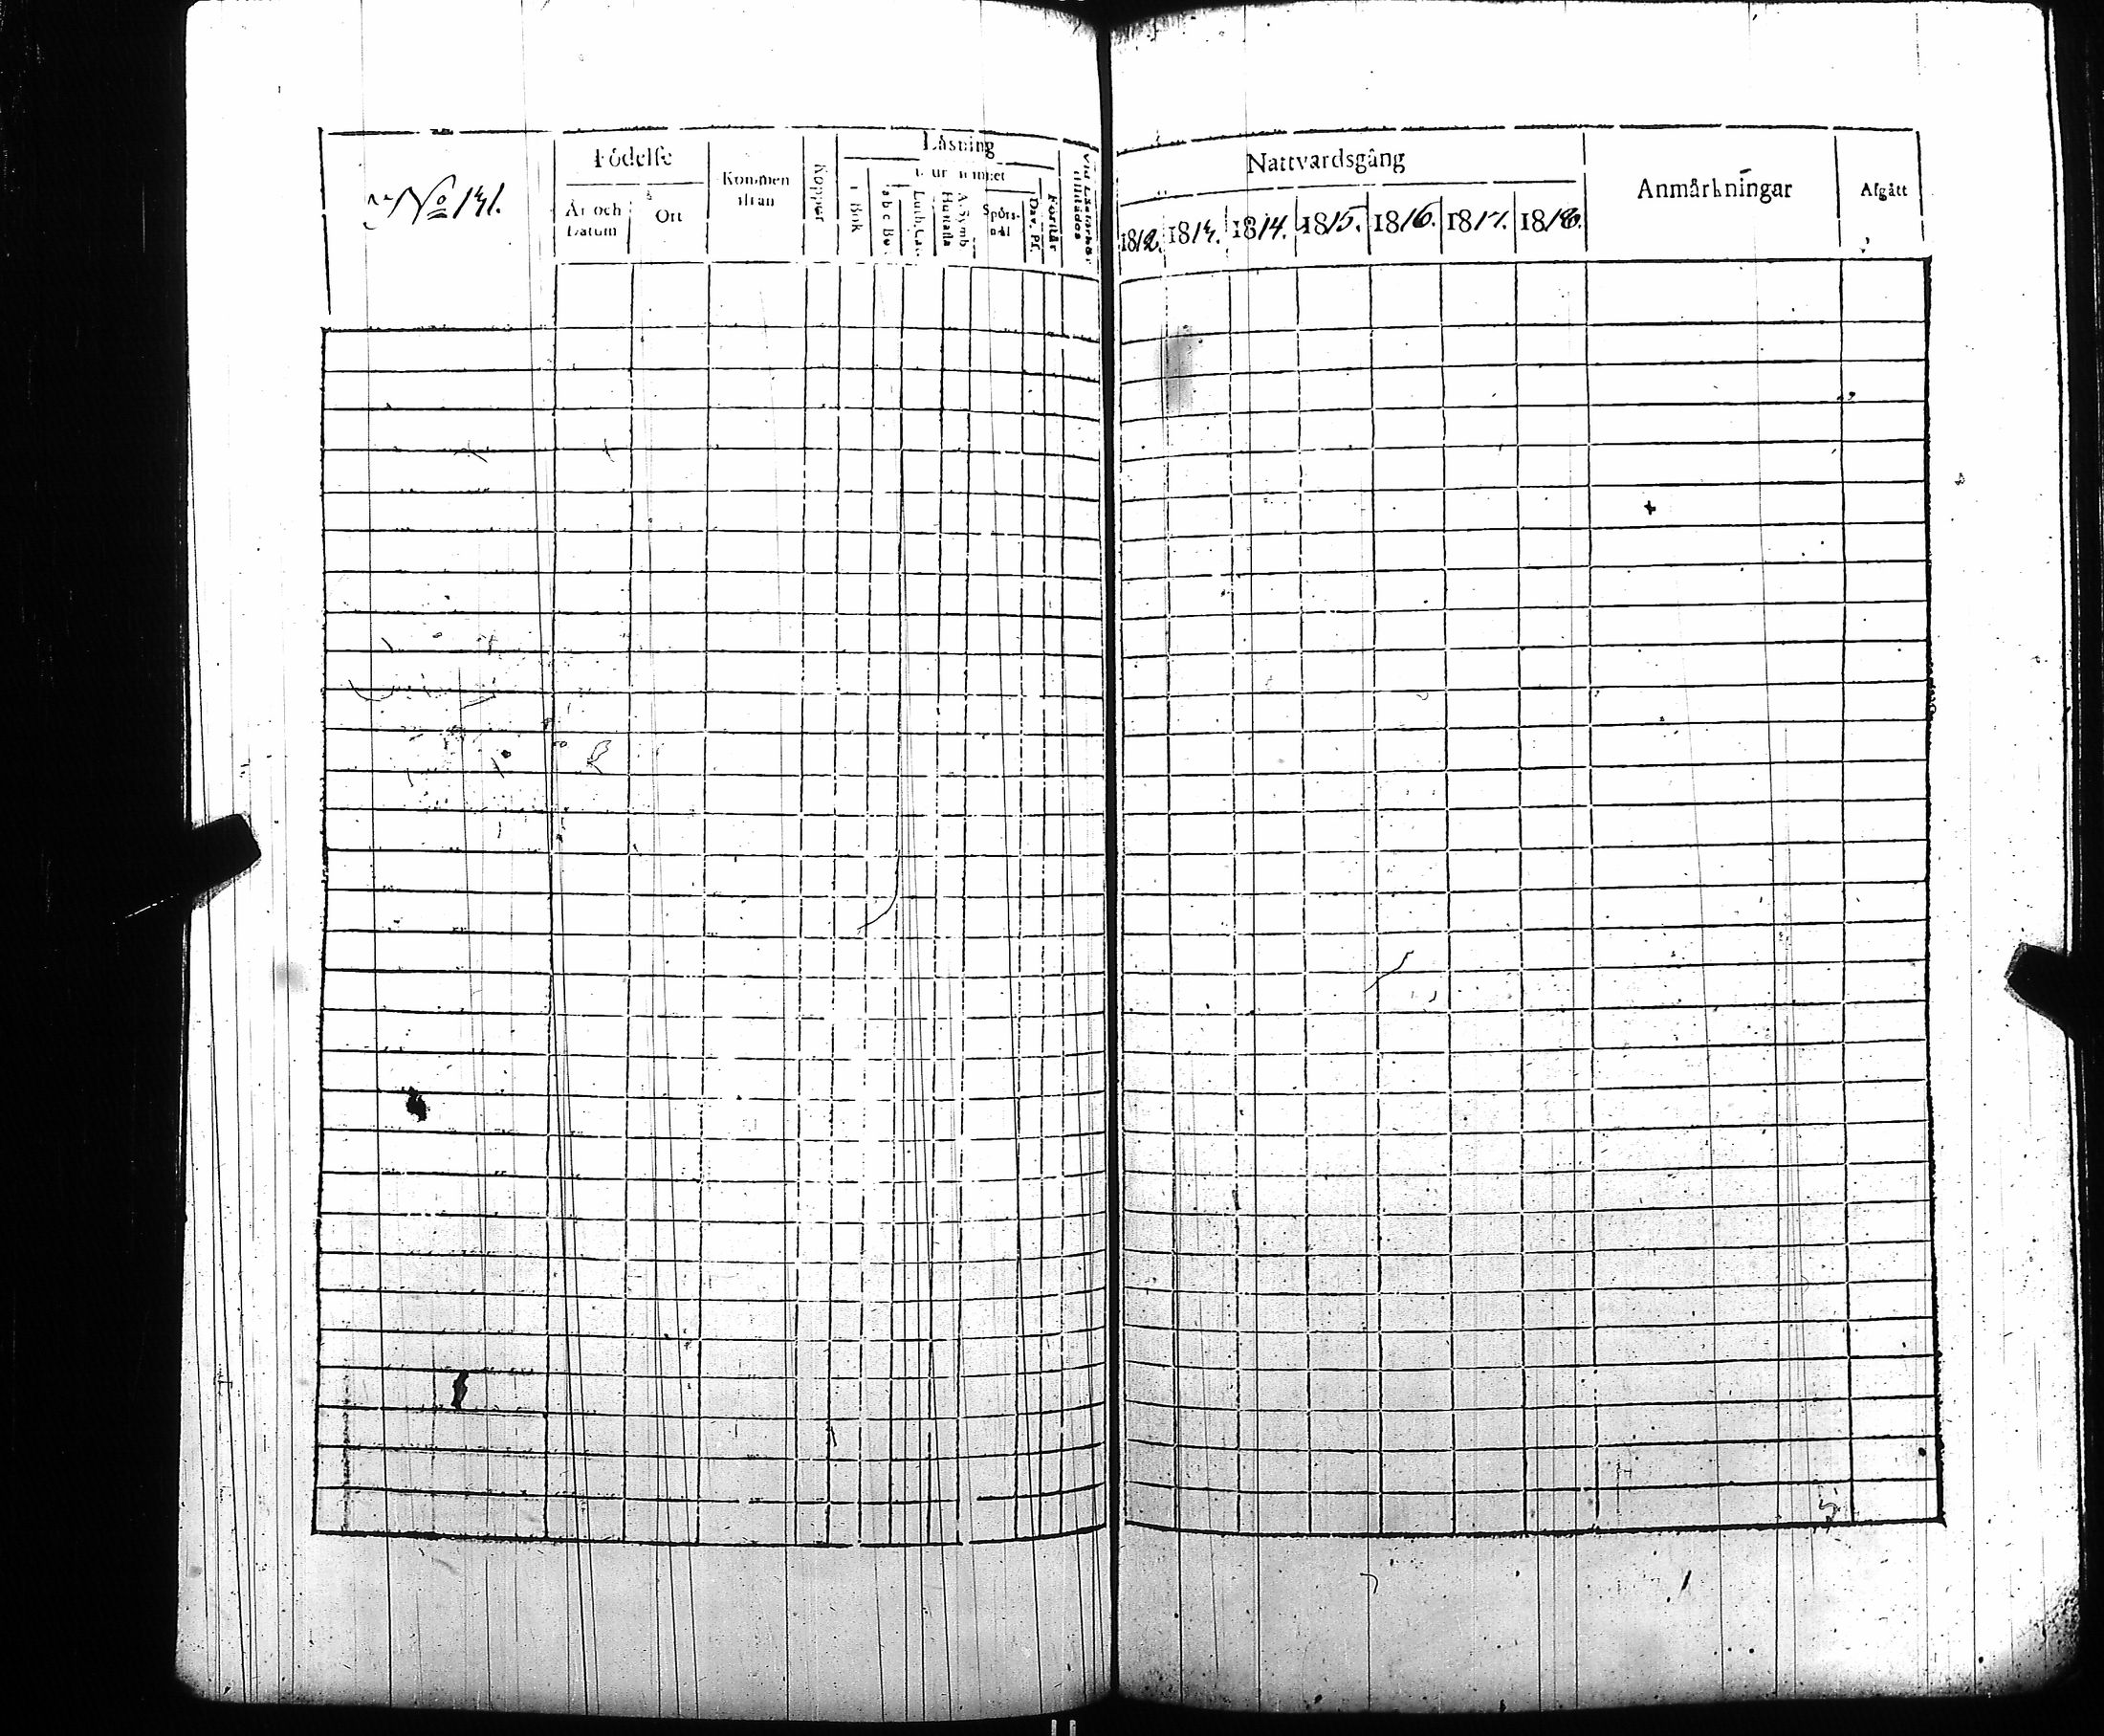 No 141.
Födelse
År och
Datum
Ort
Kommen
ifrån
Koppor
Läsning
i Bok
a b c Bo
Luth. Cat.
Hustafla
A. Symb.
Spörs-
mål
Dav. Ps.
Förstår
Nattvardsgång
1812. 1813. 1814. 1815. 1816. 1817. 1818.
Anmärkningar
Afgått